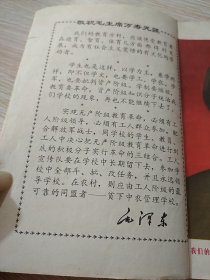 敬祝毛主席万寿无疆
我们的教育方针，应该使受教育者
在德育、智育、体育几方面都得到发
展，成为有社会主义觉悟的有文化的劳
动者。
学生也是这样，以学为主，兼学别
样，即不但学文，也要学工、学农、学
军，也要批判资产阶级。学制要缩短，
教育要革命，资产阶级知识分子统治我
们学校的现象，再也不能继续下去了。
实现无产阶级教育革命，必须有工
人阶级领导，必须有工人群众参加，配
合解放军战士，同学校的学生、教员、
工人中决心把无产阶级教育革命进行到
底的积极分子实行革命的三结合。工人
宣传队要在学校中长期留下去，参加学
校中全部斗、批、改任务，并且永远领
导学校。在农村，则应由工人阶级的最
可靠的同盟者——贫下中农管理学校。
毛泽东
我们的